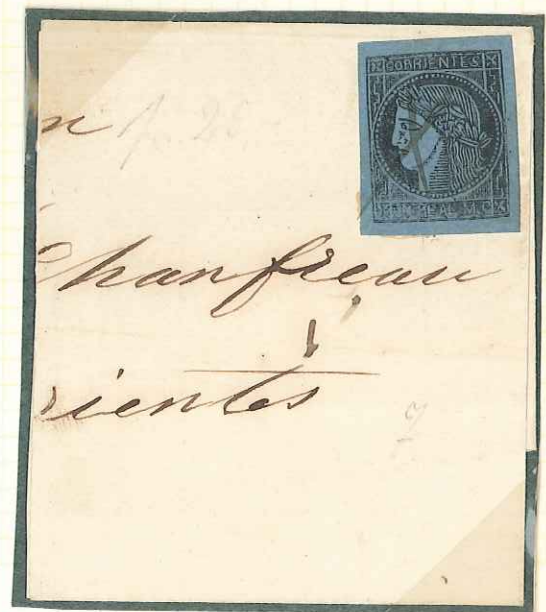 CORRIENTES
UN REAL M.C.
n
Chanfreau
rientes